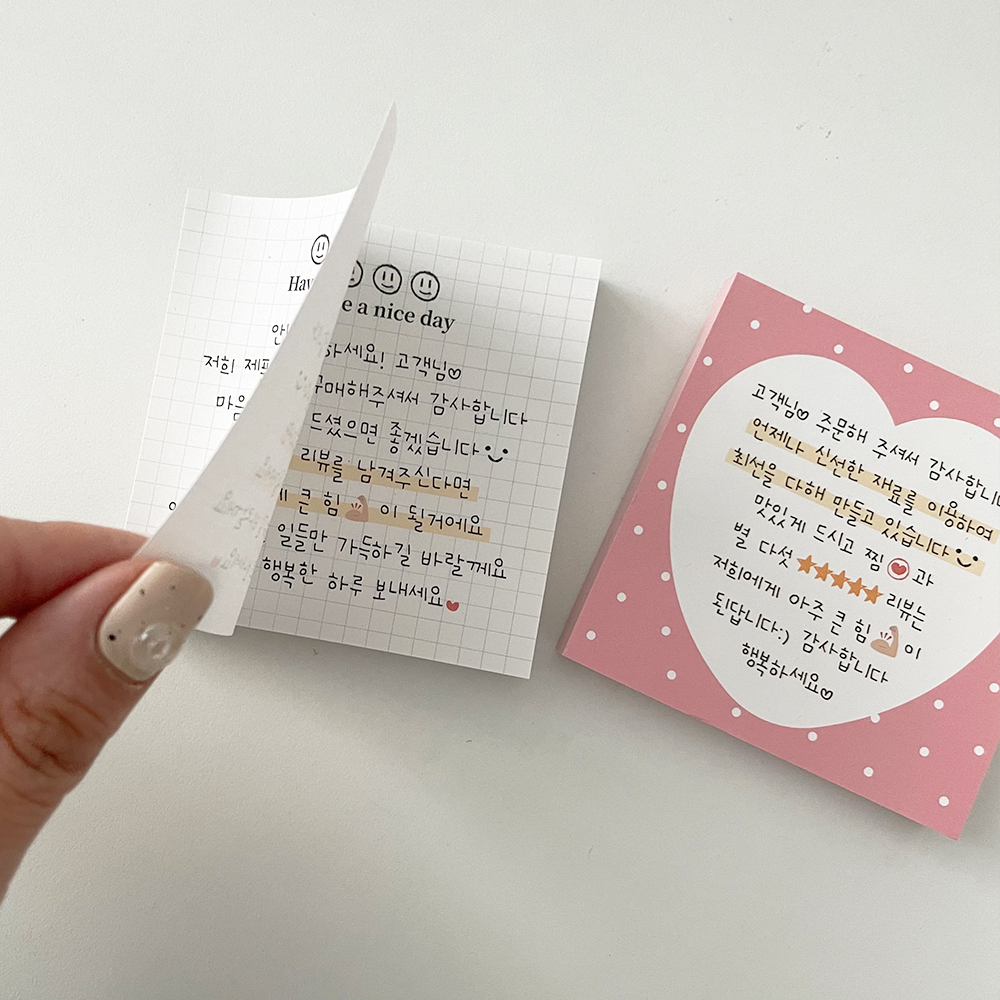 Hav
안
저희 제
마음
e a nice day
하세요! 고객님♡
구매해주셔서 감사합니다
드셨으면 좋겠습니다
리뷰를 남겨주신다면
큰 힘 💪 이 될거에요
일들만 가득하길 바랄께요
행복한 하루 보내세요
고객님♡ 주문해 주셔서 감사합니
언제나 신선한 재료를 이용하여
최선을 다해 만들고 있습니다
맛있게 드시고 찜 과
별 다섯 ★★★★★ 리뷰는
저희에게 아주 큰 힘 💪 이
된답니다:) 감사합니다
행복하세요♡